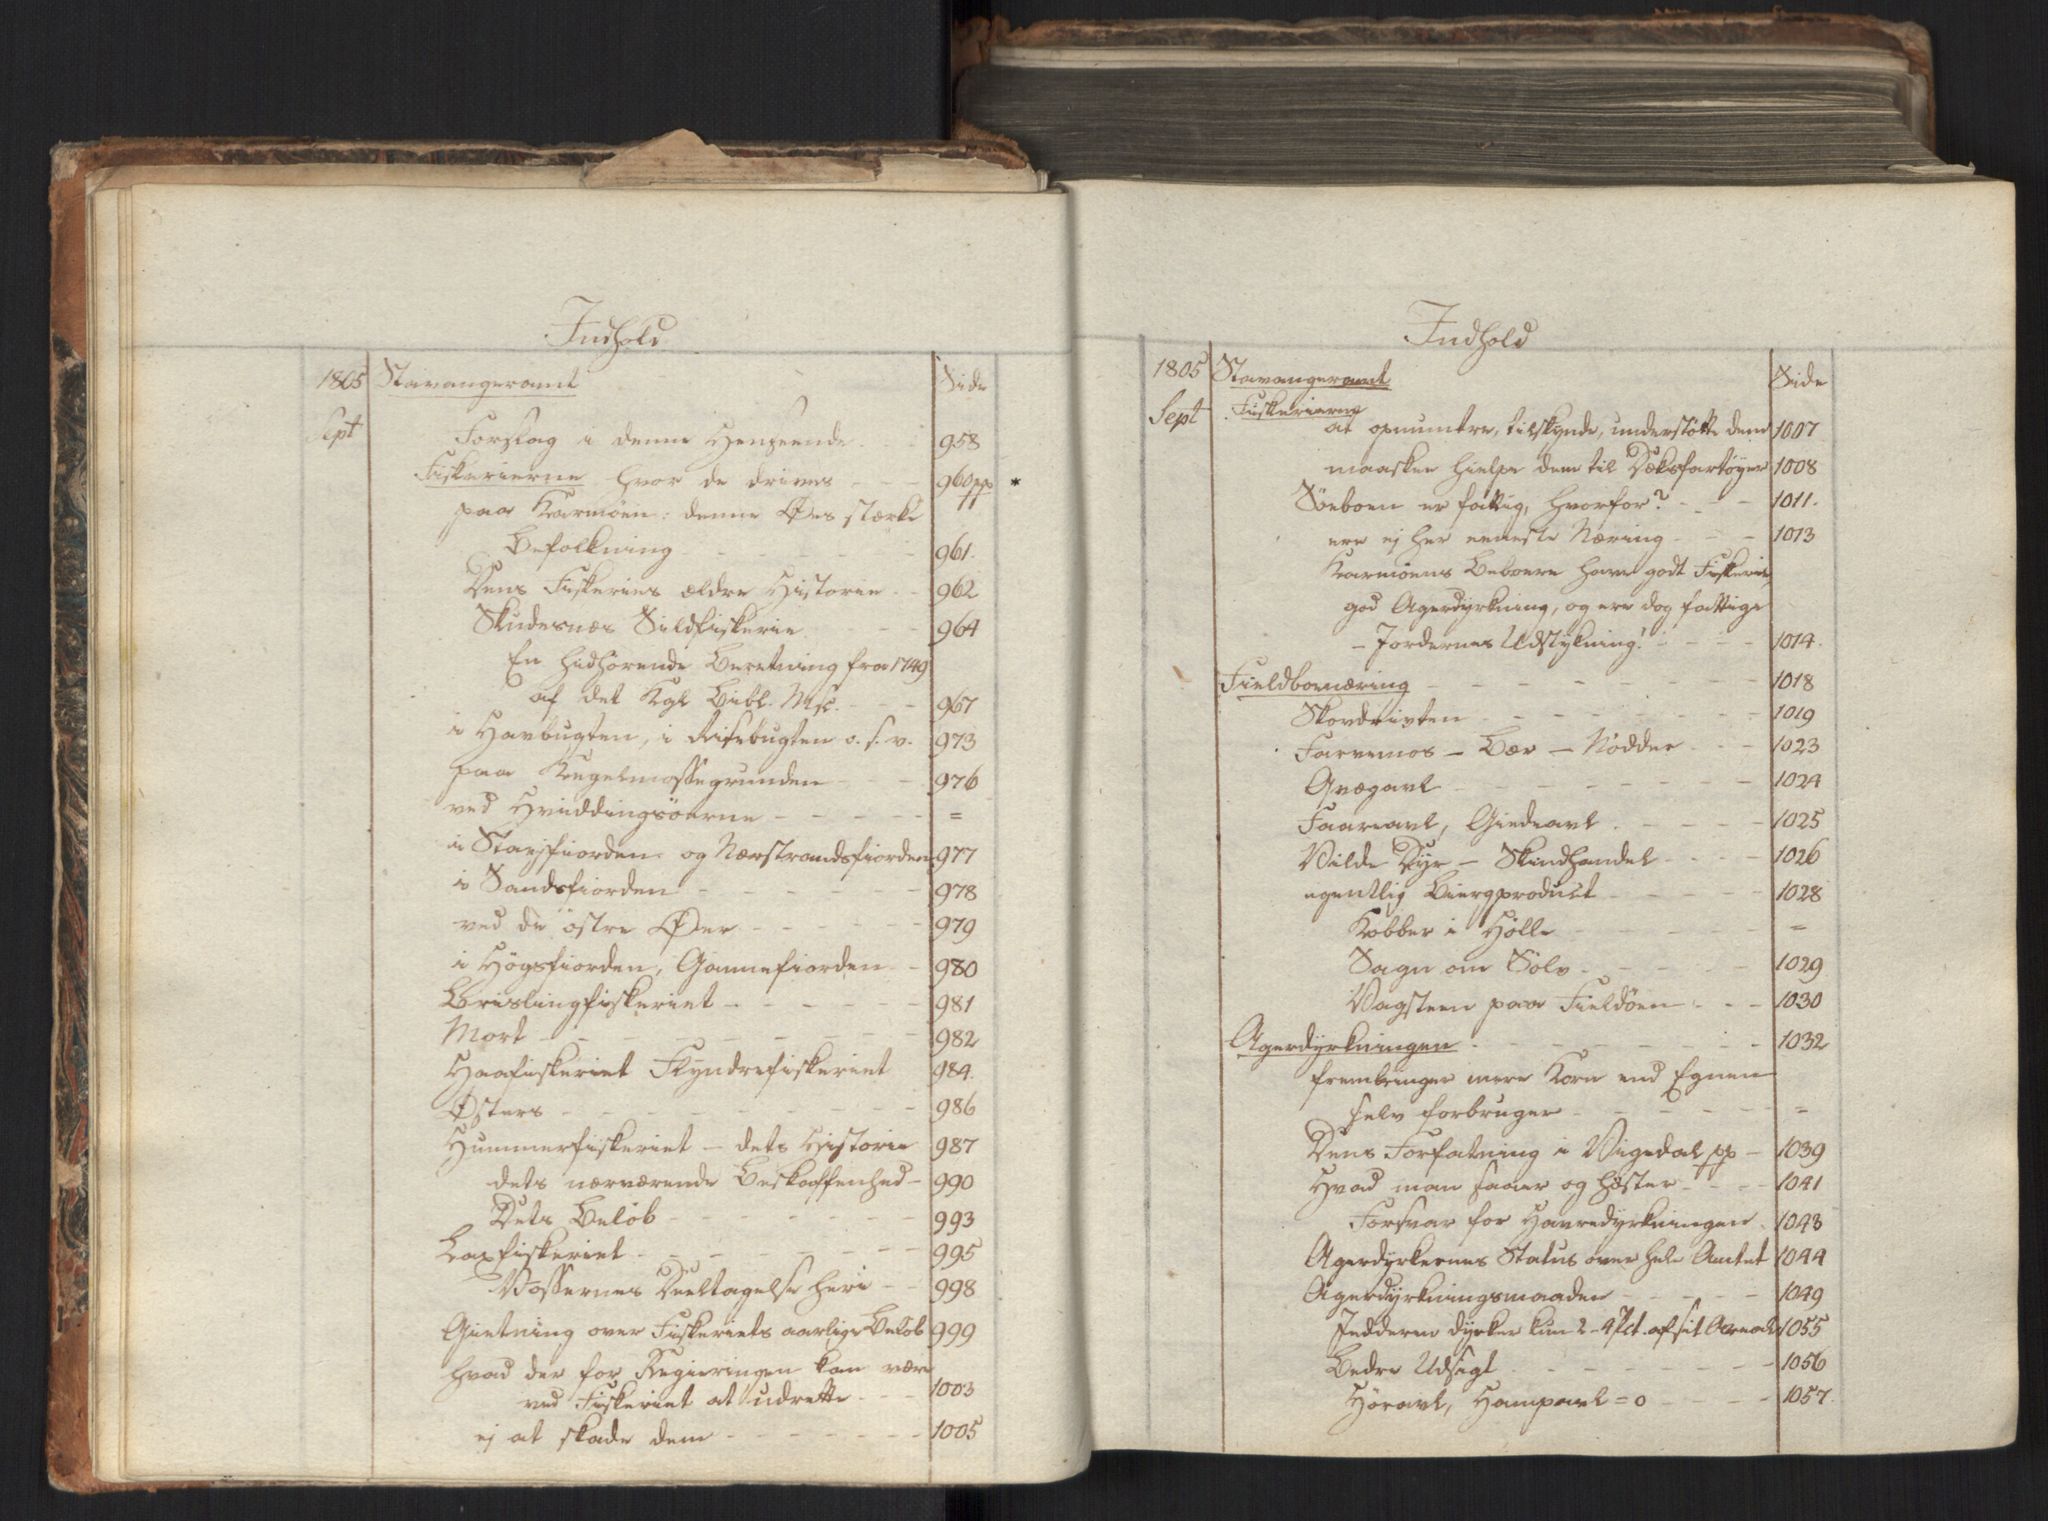 Indhold
1805 Stavangeramt Side
Sept Forslag i denne Henseende 958
Fiskerierne hvor de drives 960pp *
paa Karmöen: denne Øes stærke
Befolkning 961.
Dens Fiskeries ældre Historie 962
Skudesnæs Sildfiskerie 964
En hidhörende Beretning fra 1749
af det Kgl Bibl. Msc. 967
i Havbugten, i Risebugten o.s.v. 973
paa Kugelmassegrunden 976
ved Hviddingsöerne =
i Stavfiorden og Nærstrandsfiorden 977
i Sandsfiorden 978
ved de östre Øer 979
i Högsfiorden, Gannefiorden 980
Brislingfiskeriet 981
Mort 982
Haafiskeriet Flyndrefiskeriet 984.
Østers 986
Hummerfiskeriet - dets Historie 987
dets nærværende Beskaffenhed 990
Dets Belöb 993
Laxfiskeriet 995
Vossernes Deeltagelse heri 998
Gietning over Fiskeriets aarlige Belöb 999
hvad der for Regieringen kan være
ved Fiskeriet at udrette 1003
ej at skade dem 1005
Indhold
1805 Stavangeramt Side
Sept Fiskerierne
at opmuntre, tilskynde, understötte dem 1007
maaskee hielpe dem til Dæksfartöyer 1008
Söeboen er fattig, hvorfor? 1011.
ere ej her eeneste Næring 1013
Karmöens Beboere have godt Fiskerie,
god Agerdyrkning, og ere dog fattige
- Jordernes Udstykning! 1014.
Fieldboenæring 1018
Skovdrivten 1019
Farvemos - Bær - Nödder 1023
Qvægavl 1024
Faareavl, Giedeavl 1025
Vilde Dyr - Skindhandel 1026
egentlig Biergproduct 1028
Kobber i Hölle =
Sagn om Sölv 1029
Vagsteen paa Fieldöen 1030
Agerdyrkningen 1032
frembringer mere Korn end Egnen
selv forbruger =
Dens Forfatning i Vigedal pp 1039
Hvad man saaer og höster 1041
Forsvar for Havredyrkningen 1043
Agerdyrkernes Status over hele Amtet 1044
Agerdyrkningsmaaden 1049
Jedderen dyrker kun 2-4 Pct. af sit Areal 1055
Bedre Udsigt 1056
Höravl, Hampavl = 0 1057.